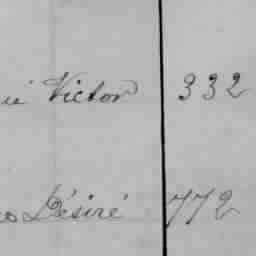 Victor 332
Désiré 772